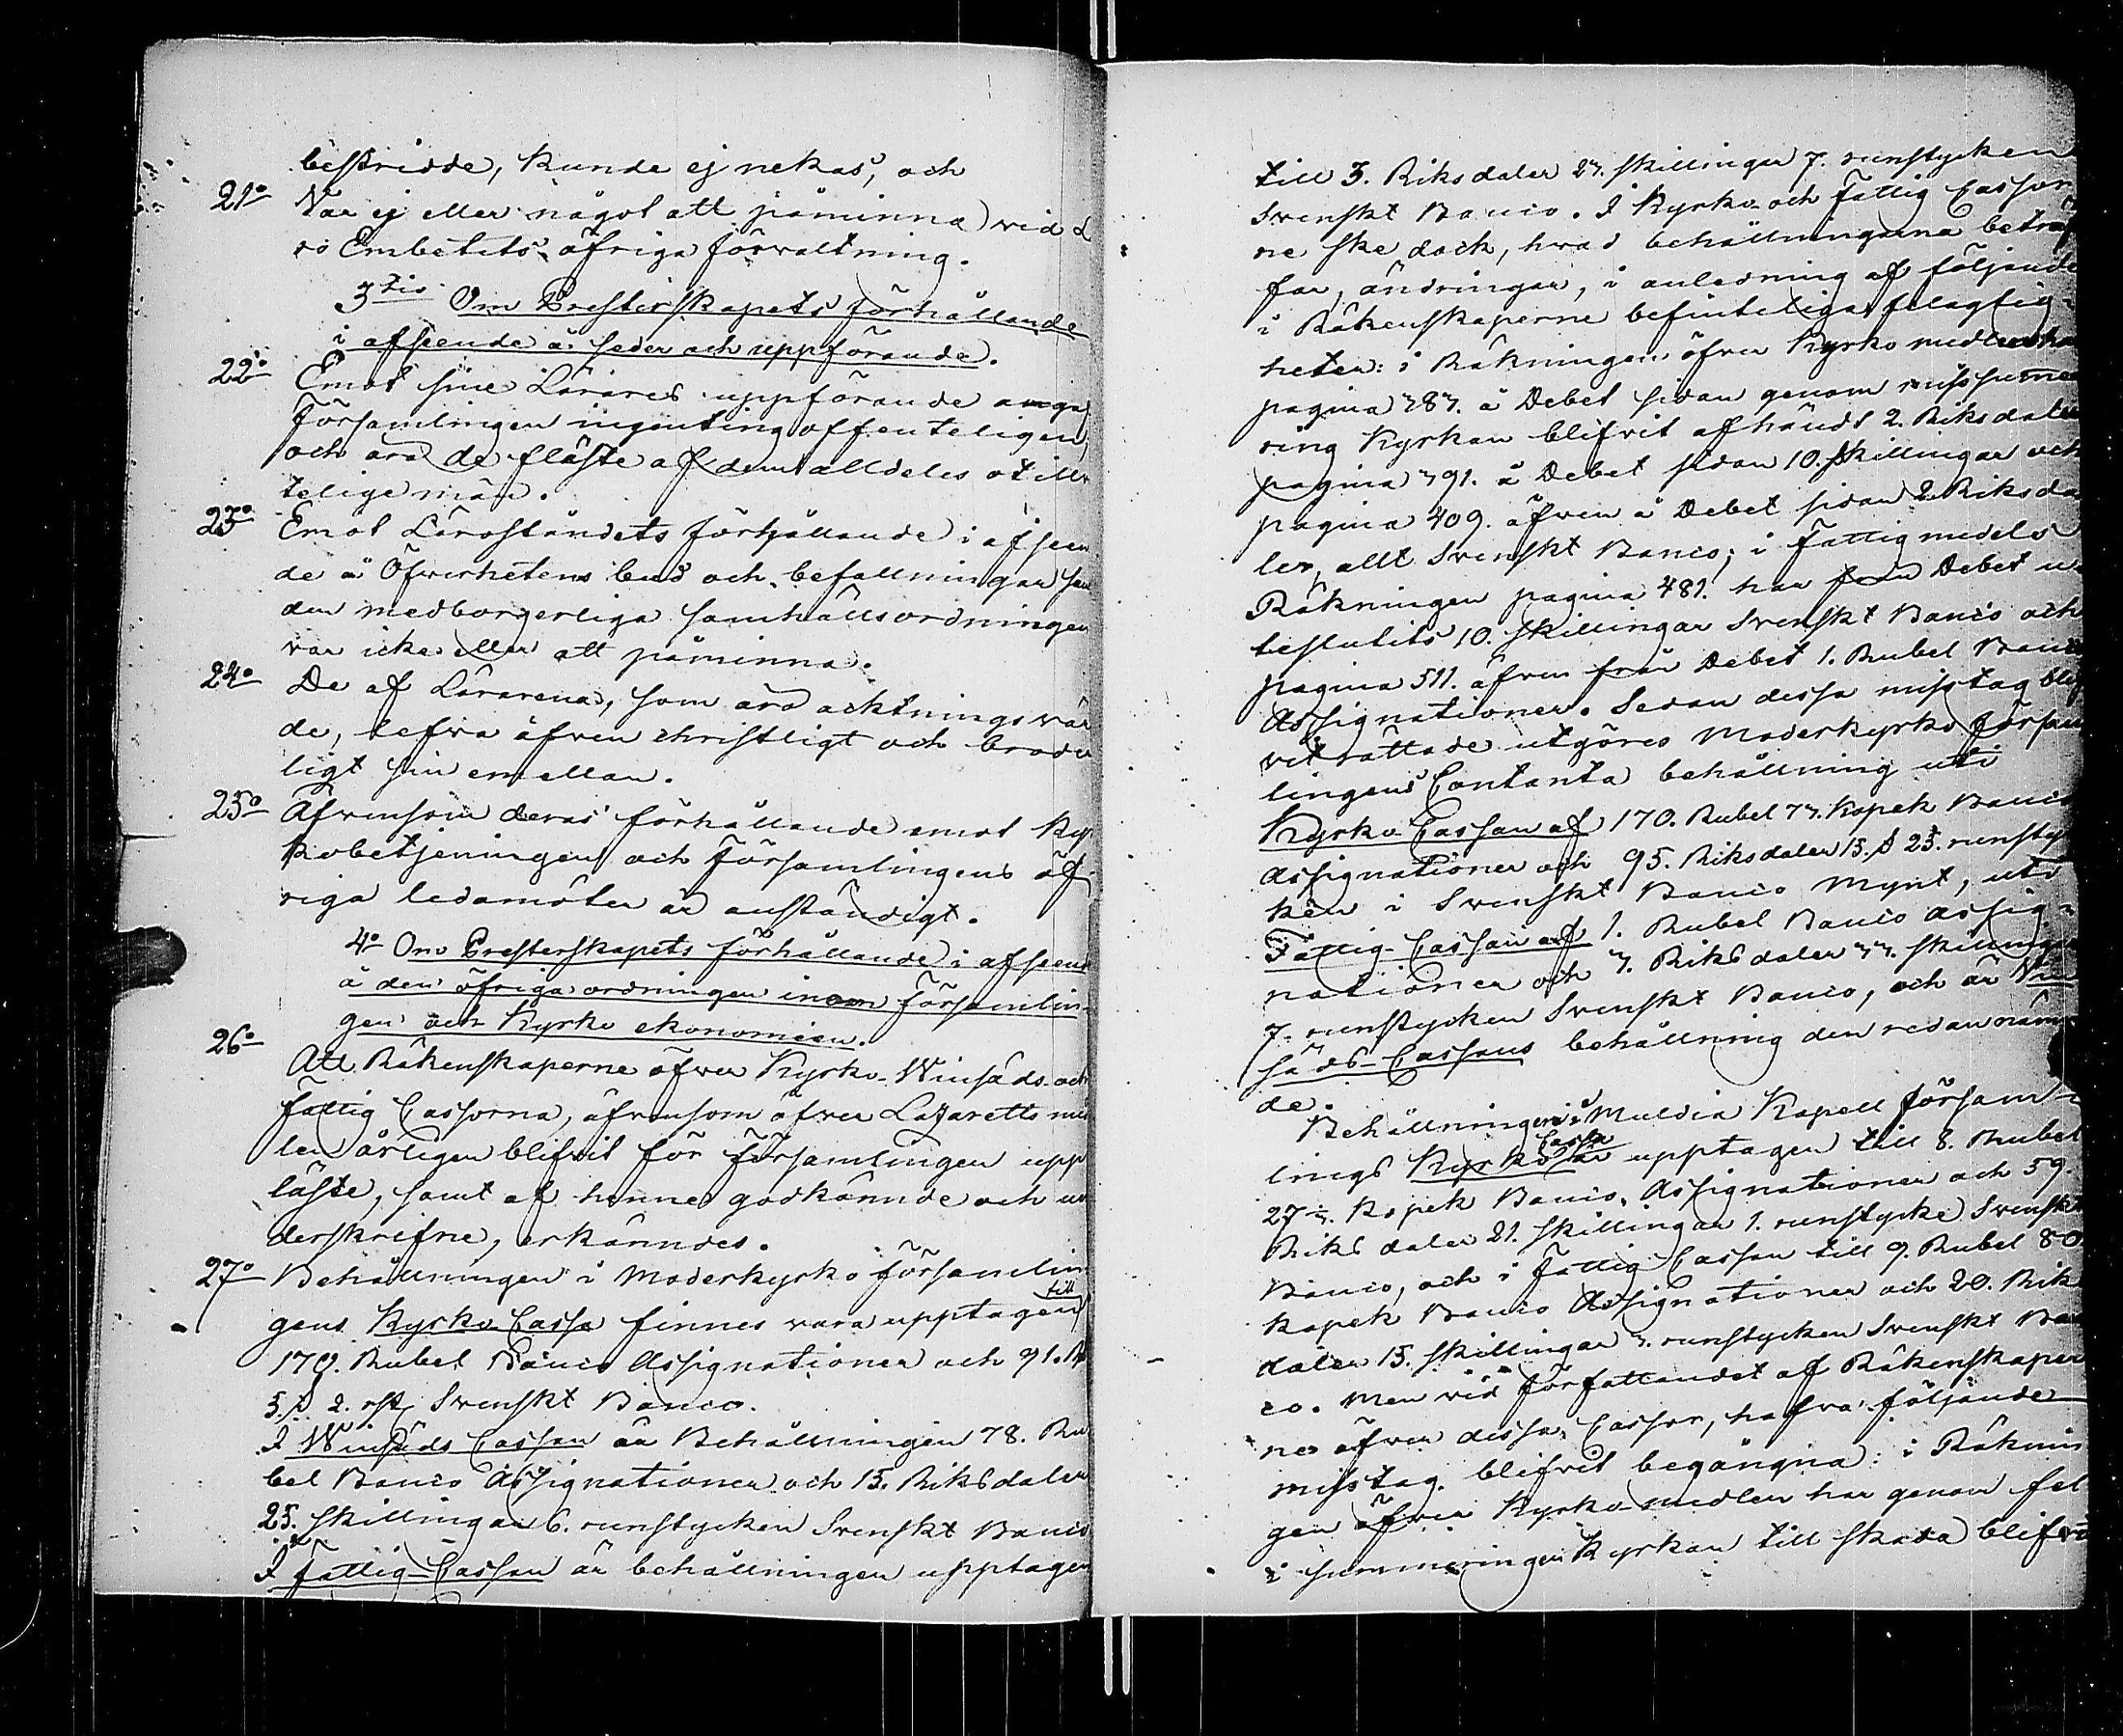 bestridde, kunde ej nekas, och
21o Var ej eller något att påminna vid L
rö Embetets öfriga förvaltning.
3tio Om Presterskapets förhållande
i afseende å seder och uppförande.
22o Emot sine Lärares uppförande
församlingen ingenting offenteligen,
och äro de fläste af dem alldeles otill
telige män.
23o Emot Läroståndets förhållande i afseen
de å Öfverhetens bud och befallningar sam
den medborgerliga samhällsordningen
var icke eller att påminna.
24o De af Lärarena, som äro acktningsvär
de, lefva äfven christligt och broder
ligt sin emellan.
25o Äfvensom deras förhållande emot Kyr
kobetjeningen och församlingens öf
riga ledamöter är anständigt.
4o Om Presterskapets förhållande i afseende
å den öfriga ordningen inom församlin
gen och Kyrko ekonomien.
26o Att Räkenskaperne öfver Kyrko- Winsäds- och
fattig Cassorna, äfvensom öfver Lazaretts me
len årligen blifvit för församlingen upp
läste, samt af henne godkännde och un
derskrifne, erkänndes.
27o Behållningen i Moderkyrko församlin
gens Kyrko Cassa finnes vara upptagen till
170. Rubel Banco Assignationer och 91. R
5. s 2. rst Svenskt Banco.
I Winsäds Cassan är Behållningen 78. Ru
bel Banco Assignationer och 15. Riksdaler
25. skillingar 6. runstycken Svenskt Banco
I fattig-Cassan är behållningen upptagen
till 3. Riksdaler 23. skillingar 7. runstycken
Svenskt Banco. I Kyrko och fattig Cassor
ne ske dock, hvad behållningarna beträf
far, ändringar, i anledning af följande
i Räkenskaperne befinteliga felagtig
heter: i Räkningen öfver Kyrko medlen har
pagina 387. å Debet sidan genom missumme
ring Kyrkan blifvit afhändt 2. Riksdaler
pagina 391. å Debet sidan 10. skillingar och
pagina 409. äfven å Debet sidan 2. Riksda
ler, allt Svenskt Banco; i fattigmedels
Räkningen pagina 481. har från Debet u
teslutits 10. skillingar Svenskt Banco och
pagina 511. äfven från Debet 1. Rubel Banco
Assignationer. Sedan dessa misstag blif
vit rättade utgöres Moderkyrko försam
lingens Contanta behållning uti
Kyrko Cassan af 170. Rubel 73. Kopek Banco
Assignationer och 95. Riksdaler 15. s 23. runsty
ken i Svenskt Banco Mynt, uti
Fattig-Cassan af 1. Rubel Banco Assig-
nationer och 3. Riksdaler 33. skillingar
7. runstycken Svenskt Banco, och är Vin
säds-Cassans behållning den redan nämn
de.
Behållningen i Muldia Kapell försam-
lings Kyrko Cassa är upptagen till 8. Rubel
27 Kopek Banco Assignationer och 59.
Riksdaler 21. skillingar 1. runstycke Svenskt
Banco, och i fattig Cassan till 9. Rubel 80
kopek Banco Assignationer och 20. Riks
daler 15. skillingar 3. runstycken Svenskt Ban
co. Men vid författandet af Räkenskaper
ne öfver dessa Cassor, hafva följande
misstag blifvit begångna: i Räknin
gen öfver Kyrko-medlen har genom fel
i summeringen Kyrkan till skada blifvit